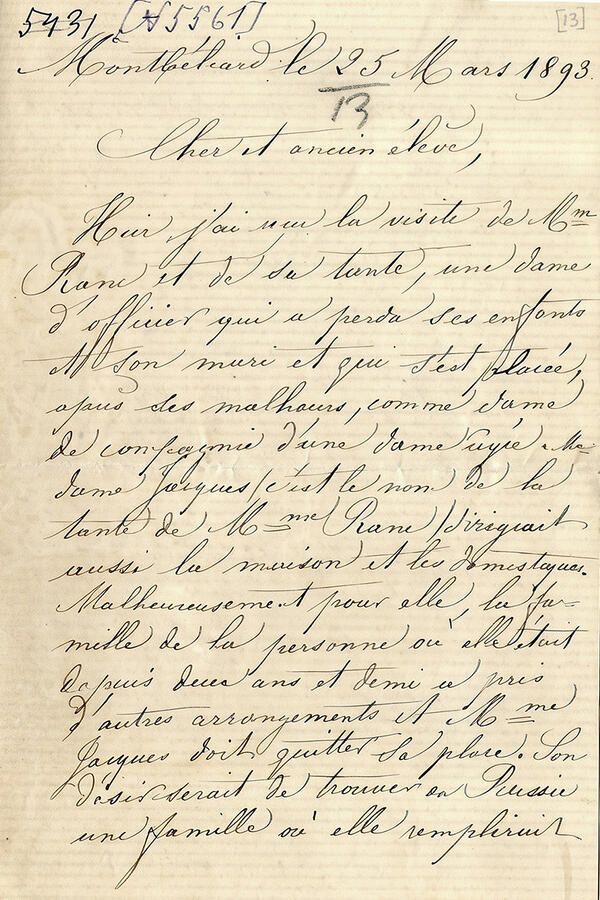 5431 [N5561] [13]
Montbéliard le 25 Mars 1893.
13
Cher et ancien élève,
Hier, j'ai reçu la visite de Mme
Ranc et de sa tante, une dame
d'officier qui a perdu ses enfants
et son mari et qui s'est placée,
après ses malheurs, comme dame
de compagnie d'une dame âgée. Ma-
dame Jacques (c'est le nom de la
tante de Mme Ranc) dirigeait
aussi la maison et les domestiques.
Malheureusement pour elle, la fa-
mille de la personne où elle était
depuis deux ans et demi a pris
d'autres arrangements et Mme
Jacques doit quitter sa place. Son
désir serait de trouver en Russie
une famille où elle remplirait